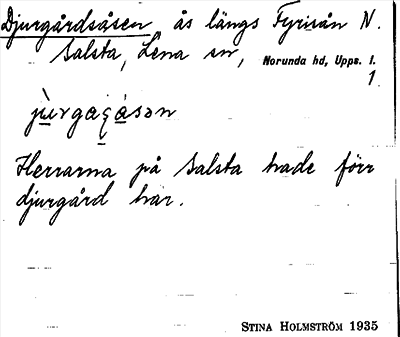 Djurgårdsåsen, ås längs Fyrisån N.
Salsta, Lena sn, Norunda hd, Upps. l.
1
Herrarna på Salsta hade förr
djurgård här.
STINA HOLMSTRÖM 1935